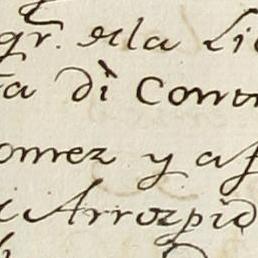 qr. de la Li
ta di Com
omez y a
i Arrozpid